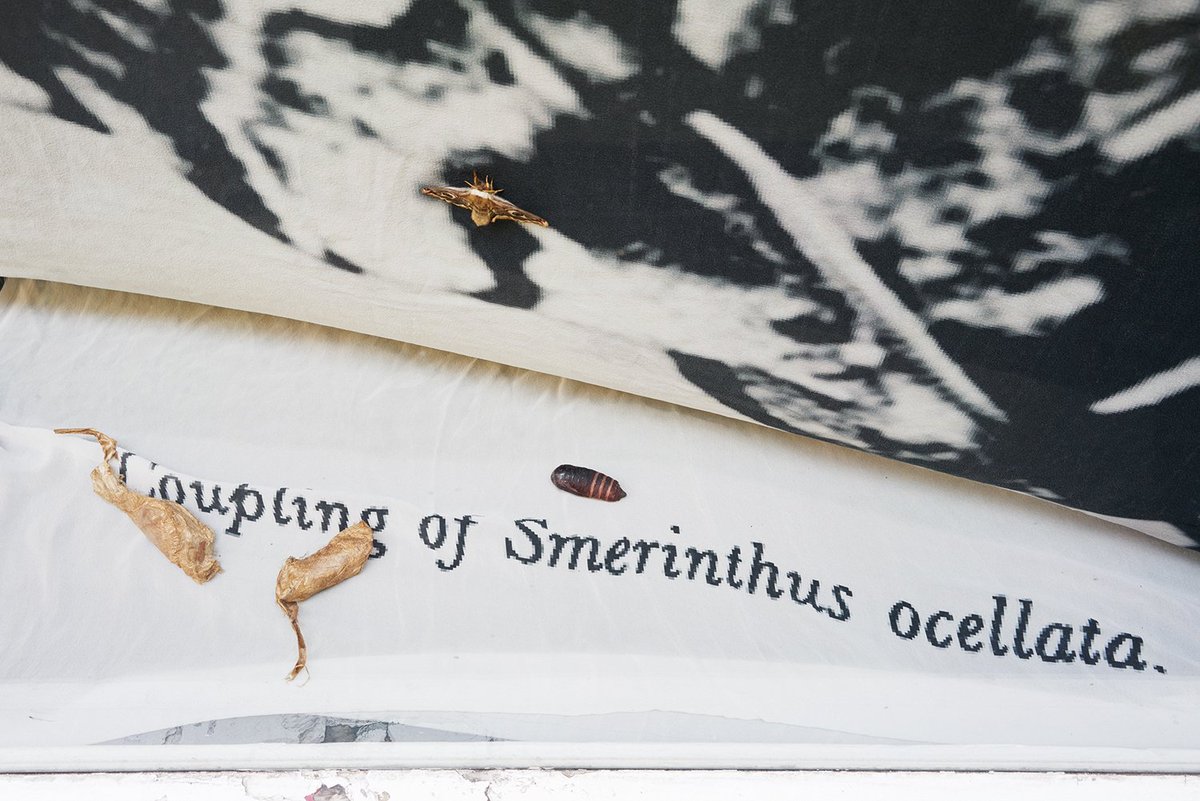 Coupling of Smerinthus ocellata.